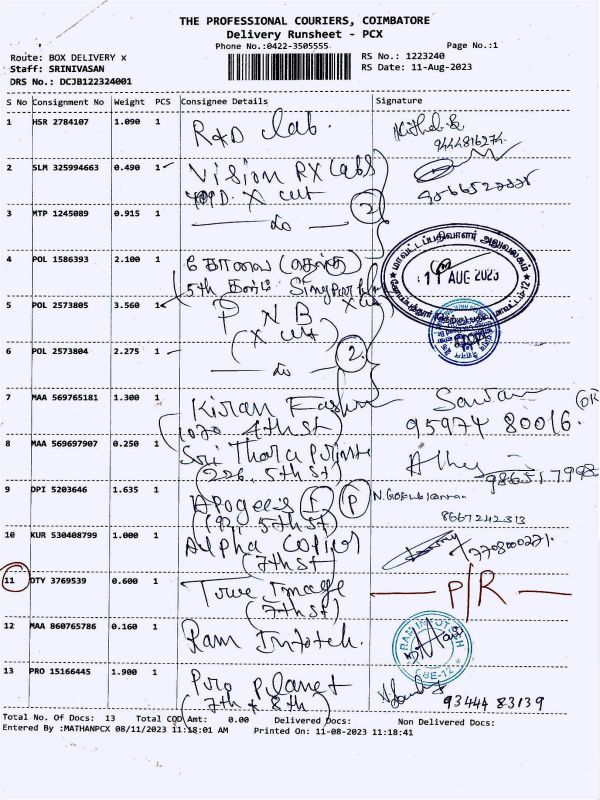 THE PROFESSIONAL COURIERS, COIMBATORE
Delivery Runsheet - PCX
Phone No.:0422-3505555
Page No.:1
Route: BOX DELIVERY x
RS No.: 1223240
Staff: SRINIVASAN
RS Date: 11-Aug-2023
DRS No.: DCJB122324001
S No Consignment No Weight PCS Consignee Details Signature
1 HSR 2784107 1.090 1 R&D lab.
2 SLM 325994663 0.490 1 Vision RX Labs
X cut
3 MTP 1245089 0.915 1 — do — 2
4 POL 1586393 2.100 1
5th
மாவட்டப்பதிவாளர் அலுவலகம்
11 AUG 2023
5 POL 2573805 3.560 1 P N B
(X cut)
6 POL 2573804 2.275 1 — do — 2.
7 MAA 569765181 1.300 1 Kiran Fashion
(1020 4th st)
95974 80016.
8 MAA 569697907 0.250 1 Sri Thara Prints
(226, 5th st)
9 DPI 5203646 1.635 1 Apogees F P
5th st)
N. Gokulakannan
8667242313
10 KUR 530408799 1.000 1 Alpha Copier
(7th st)
7708000271.
11 DTY 3769539 0.600 1 True Image
(7th st)
— P/R —
12 MAA 860765786 0.160 1 Ram Infotech.
RAM INFOTECH
CBE-12
13 PRO 15166445 1.900 1 Pro Planet
(7th & 8th)
93444 83139
Total No. Of Docs: 13 Total COD Amt: 0.00 Delivered Docs: Non Delivered Docs:
Entered By :MATHANPCX 08/11/2023 11:18:01 AM Printed On: 11-08-2023 11:18:41